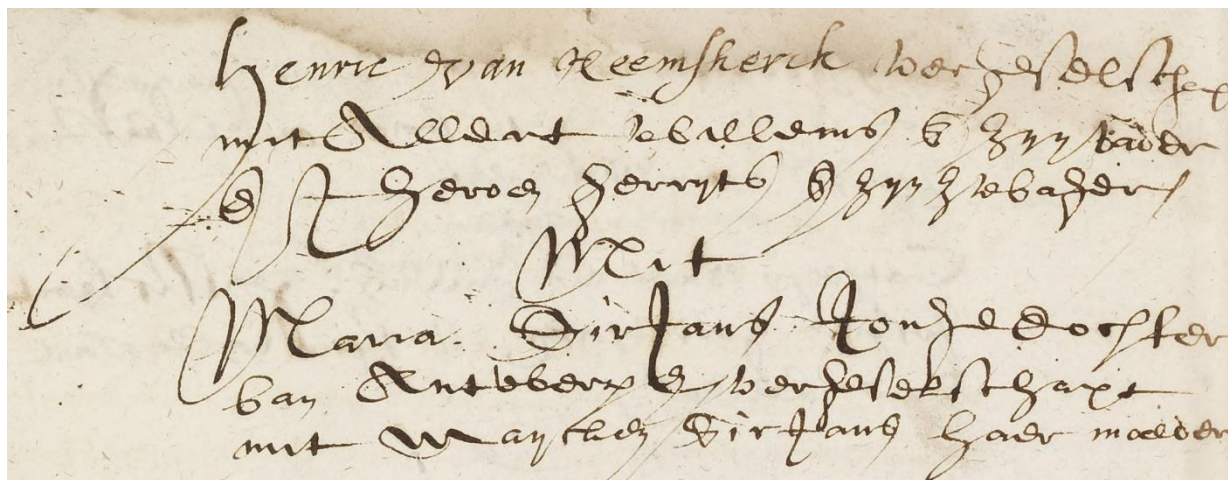 Henric van Heemskerck vergeselschap
mit Allert Willems zyn vader
en Jheroen gerryts zyn zwager
Mit
Maria SirJans Jonge dochter
van Antwerpen vergeselschapt
mit Mayken SirJans haer moeder